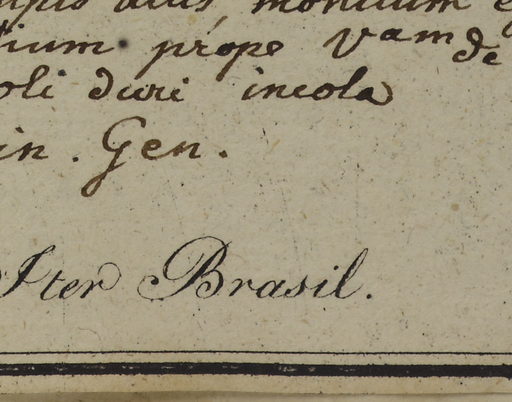 montium
tium prope Vam de
oli duri incola
in. Gen.
Iter Brasil.